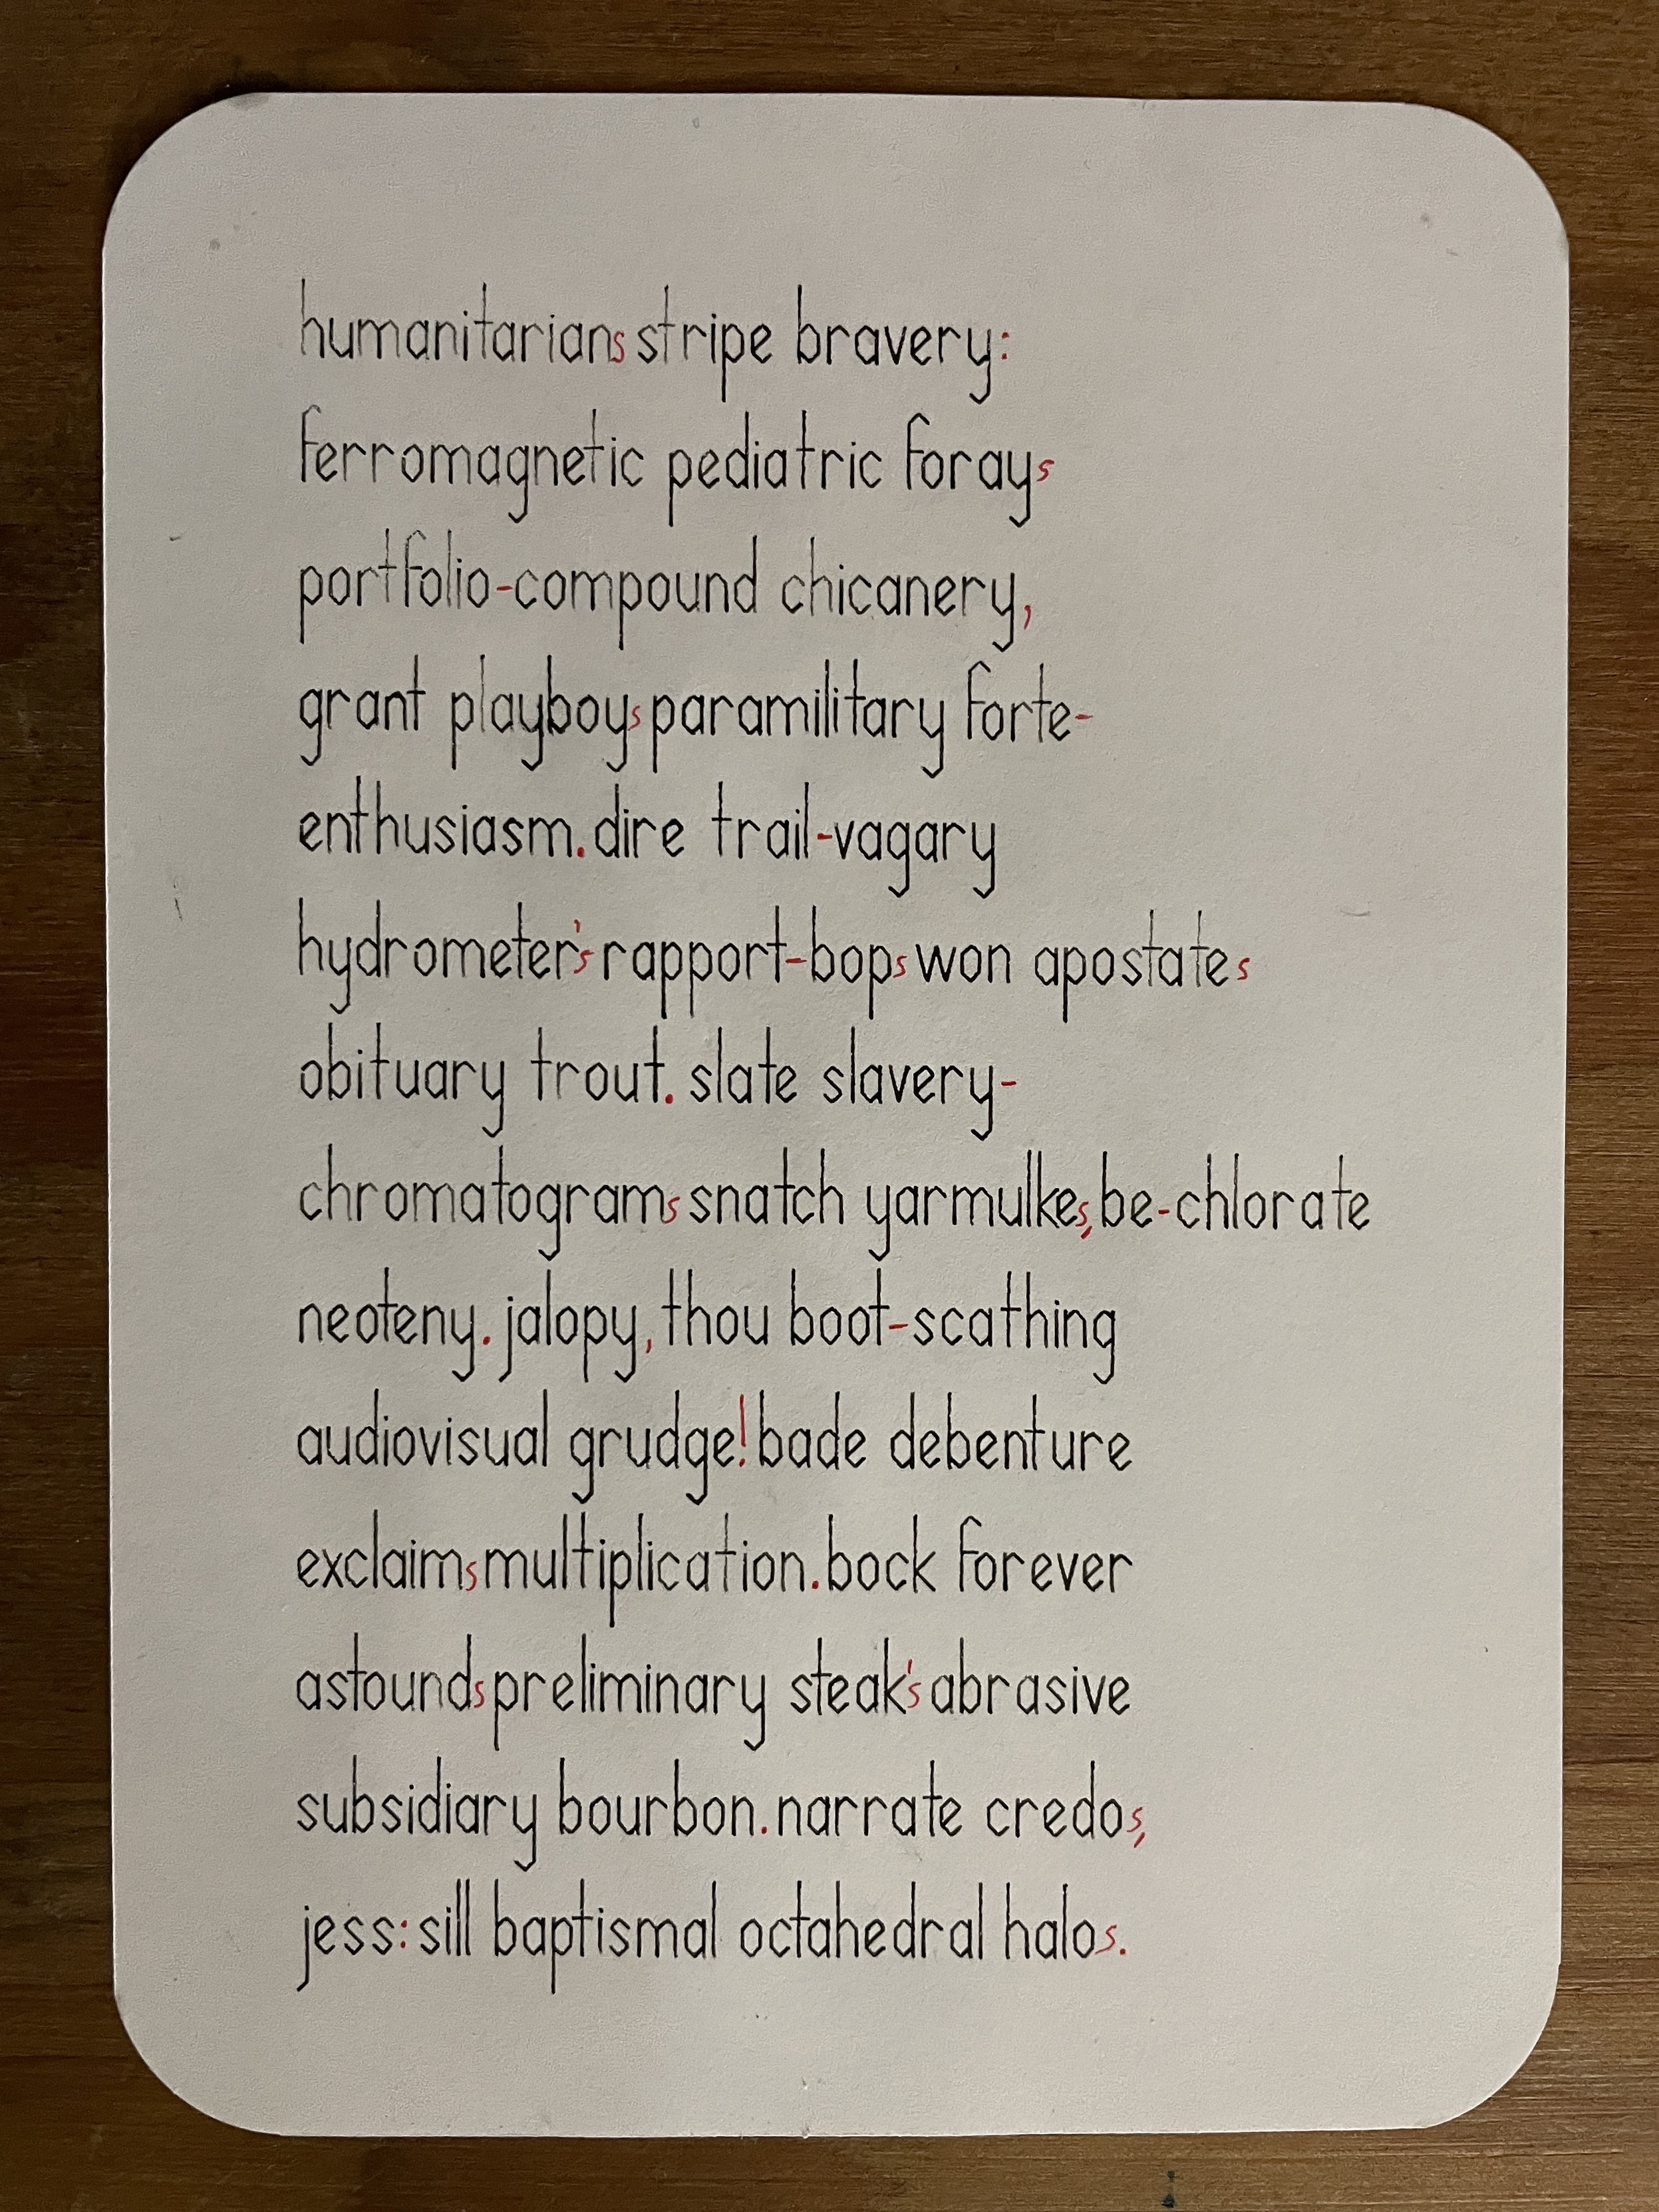 humanitarians stripe bravery:
ferromagnetic pediatric forays
portfolio-compound chicanery,
grant playboys paramilitary forte-
enthusiasm. dire trail-vagary
hydrometer's rapport-bops won apostates
obituary trout. slate slavery-
chromatograms snatch yarmulkes, be-chlorate
neoteny. jalopy, thou boot-scathing
audiovisual grudge! bade debenture
exclaims multiplication. bock forever
astounds preliminary steak's abrasive
subsidiary bourbon. narrate credos,
jess: sill baptismal octahedral halos.